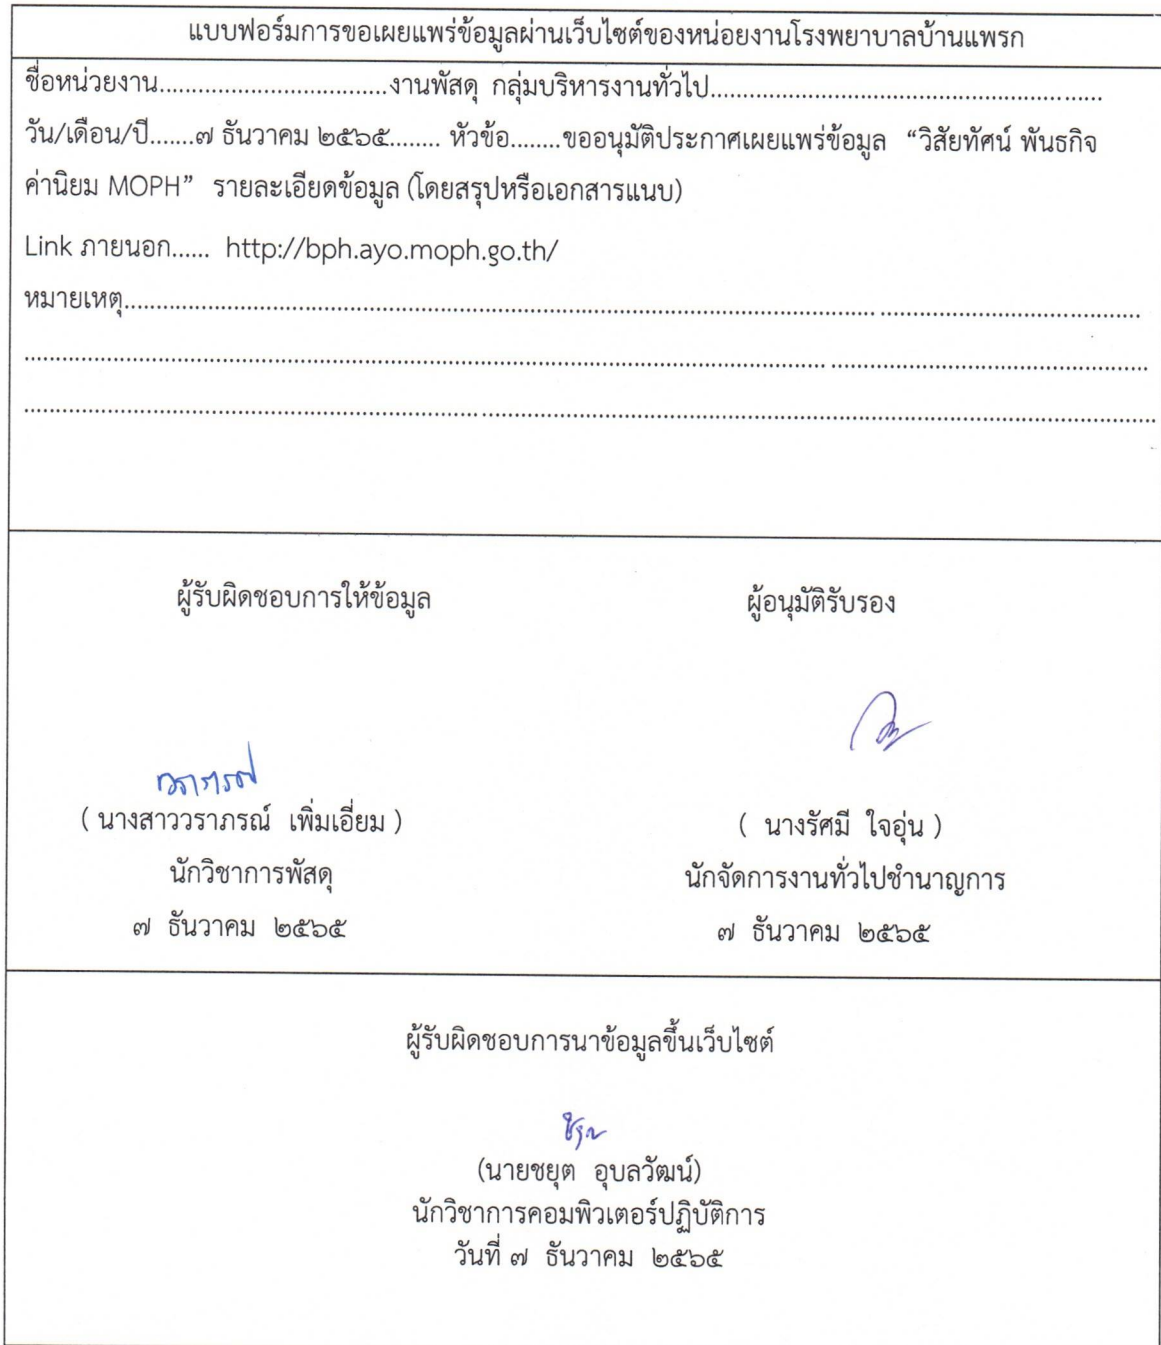 แบบฟอร์มการขอเผยแพร่ข้อมูลผ่านเว็บไซต์ของหน่อยงานโรงพยาบาลบ้านแพรก
ชื่อหน่วยงาน....................................งานพัสดุ กลุ่มบริหารงานทั่วไป..............................................................
วัน/เดือน/ปี.......๗ ธันวาคม ๒๕๖๕........ หัวข้อ........ขออนุมัติประกาศเผยแพร่ข้อมูล “วิสัยทัศน์ พันธกิจ
ค่านิยม MOPH” รายละเอียดข้อมูล (โดยสรุปหรือเอกสารแนบ)
Link ภายนอก...... http://bph.ayo.moph.go.th/
หมายเหตุ..............................................................................................................................
ผู้รับผิดชอบการให้ข้อมูล ผู้อนุมัติรับรอง
วราภรณ์
( นางสาววราภรณ์ เพิ่มเอี่ยม ) ( นางรัศมี ใจอุ่น )
นักวิชาการพัสดุ นักจัดการงานทั่วไปชำนาญการ
๗ ธันวาคม ๒๕๖๕ ๗ ธันวาคม ๒๕๖๕
ผู้รับผิดชอบการนาข้อมูลขึ้นเว็บไซต์
(นายชยุต อุบลวัฒน์)
นักวิชาการคอมพิวเตอร์ปฏิบัติการ
วันที่ ๗ ธันวาคม ๒๕๖๕